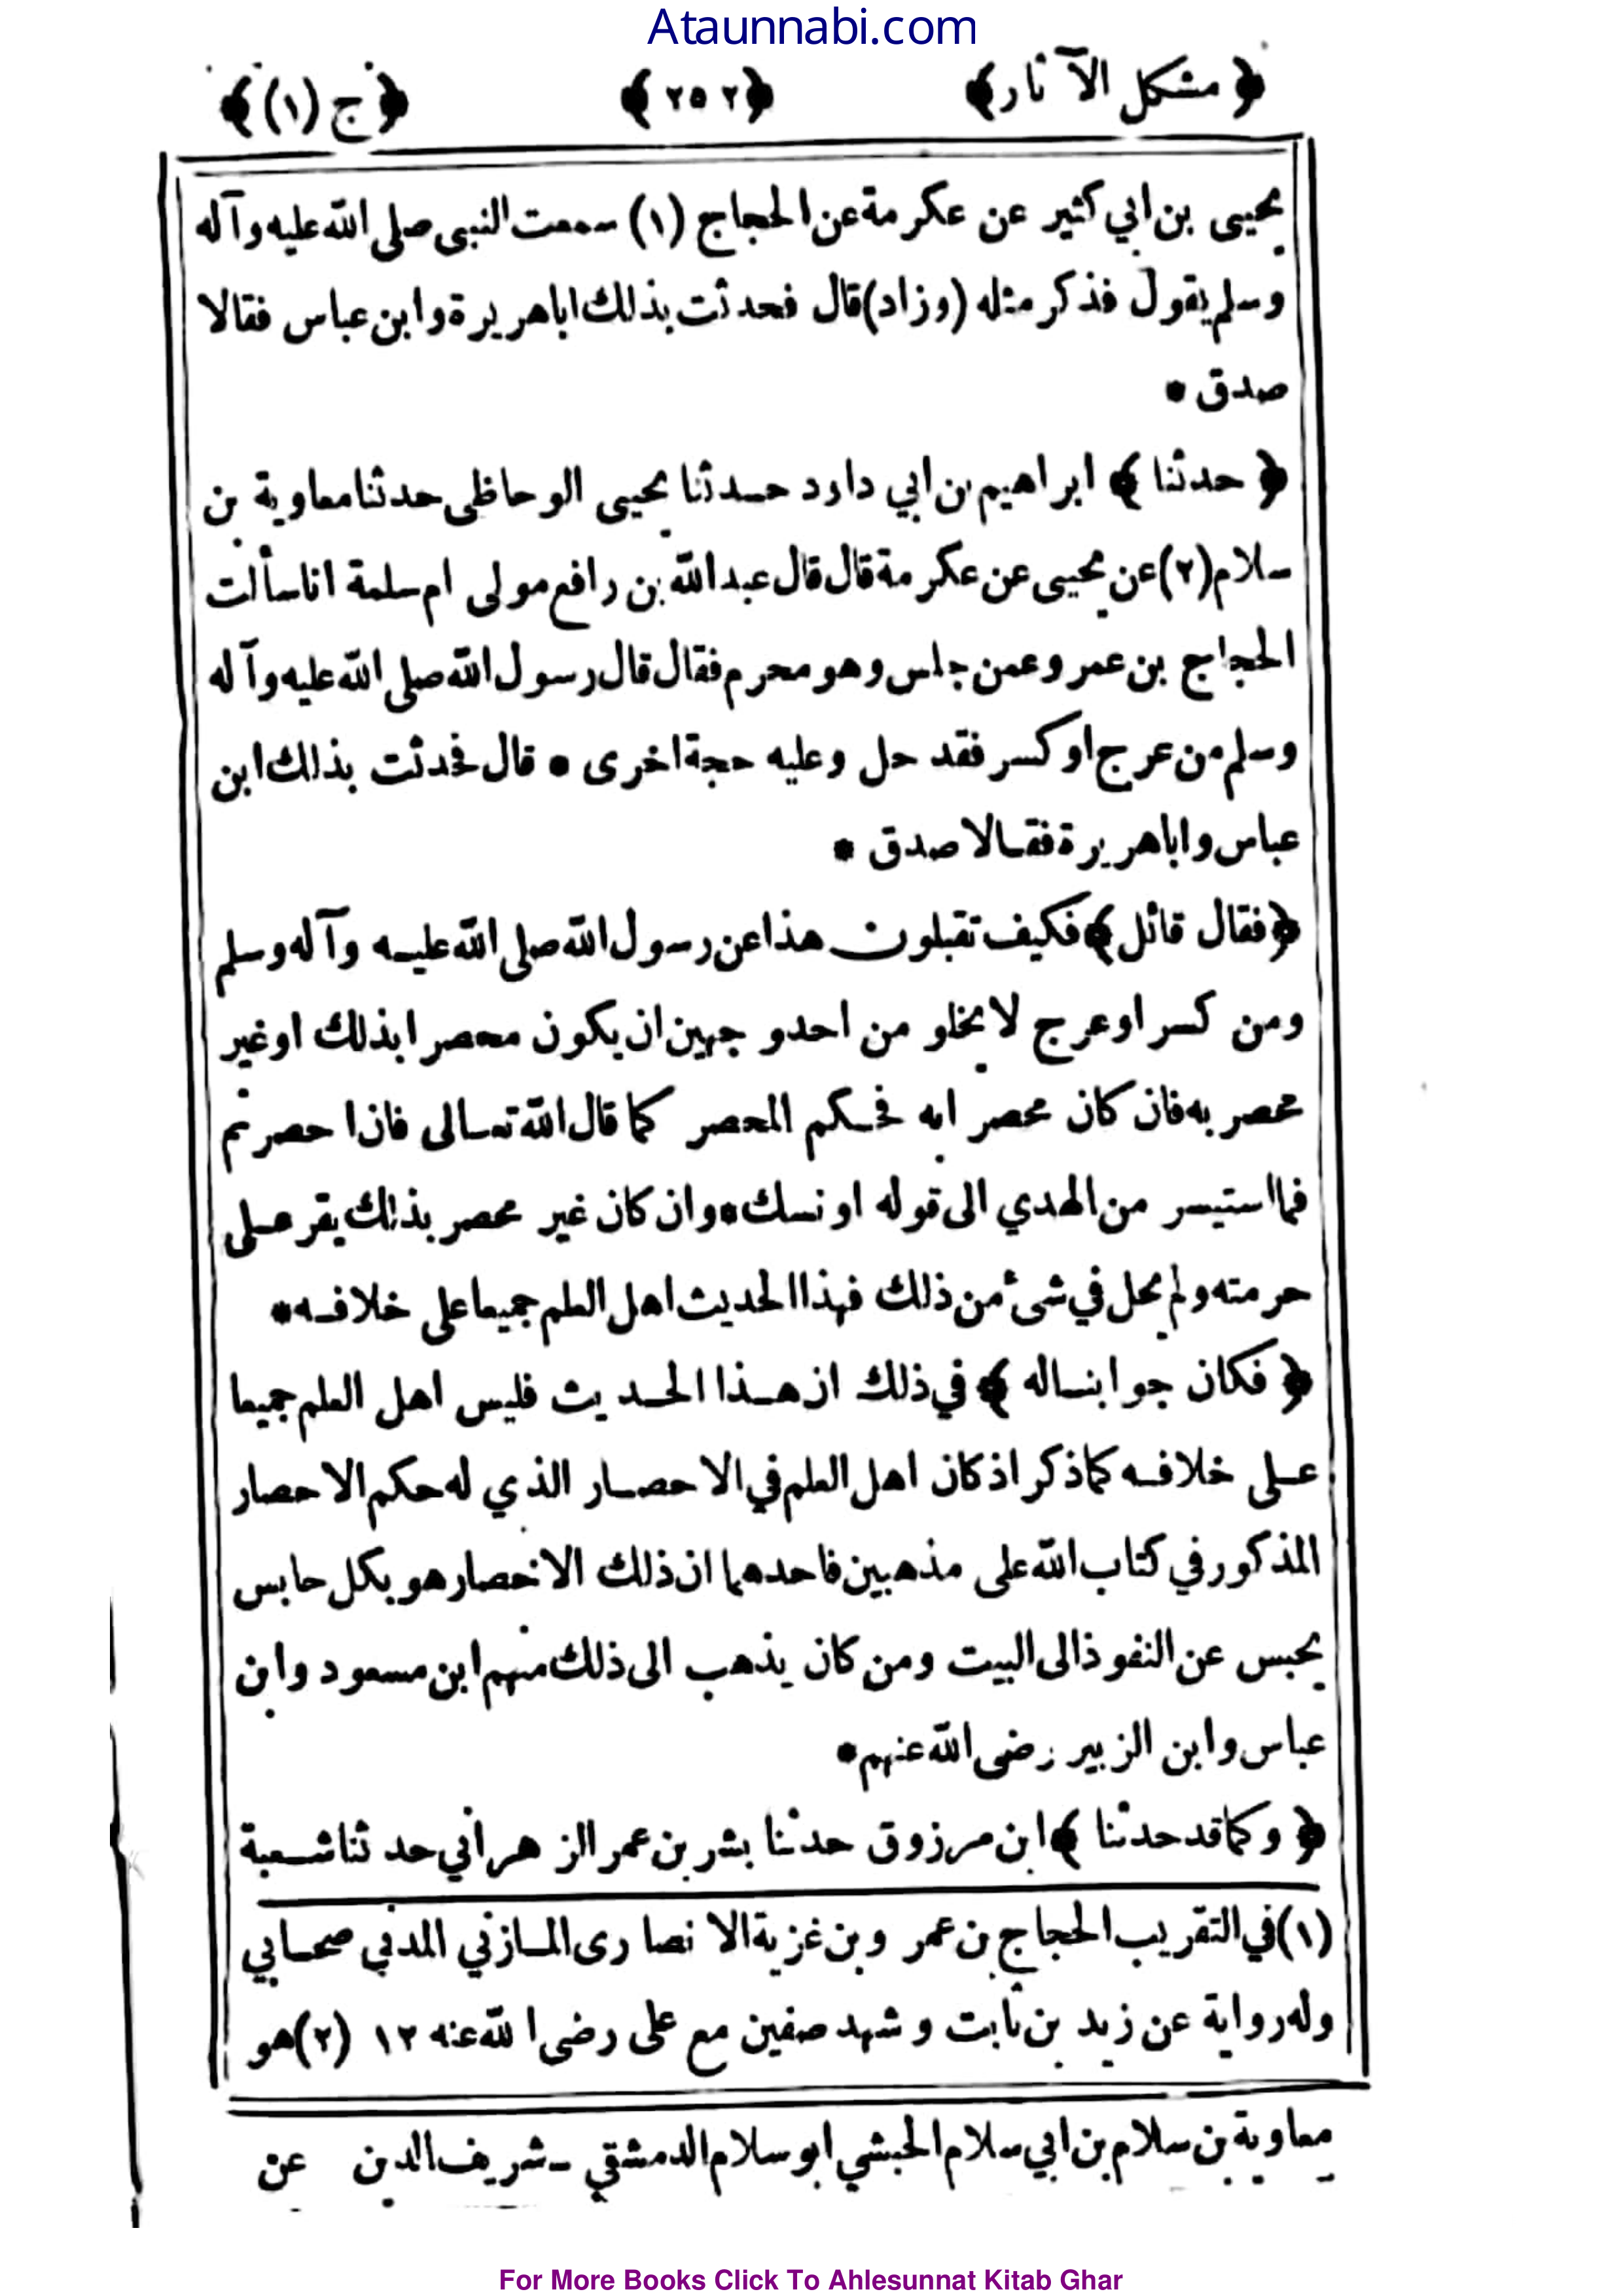 Ataunnabi.com
﴿ مشكل الآثار﴾ ﴿٢٥٢﴾ ﴿ج (١)﴾
يحيى بن ابي كثير عن عكرمة عن الحجاج (١) سمعت النبى صلى الله عليه وآله
وسلم يقول فذكر مثله (وزاد) قال فحدثت بذلك اباهريرة وابن عباس فقالا
صدق *
﴿ حدثنا ﴾ ابراهيم بن ابي داود حدثنا يحيى الوحاظى حدثنا معاوية بن
سلام (٢) عن يحيى عن عكرمة قال قال عبدالله بن رافع مولى ام سلمة انا سألت
الحجاج بن عمر وعمن حبس وهو محرم فقال قال رسول الله صلى الله عليه وآله
وسلم من عرج او كسر فقد حل وعليه حجة اخرى * قال فحدثت بذلك ابن
عباس واباهريرة فقالا صدق *
﴿فقال قائل﴾ فكيف تقبلون هذا عن رسول الله صلى الله عليه وآله وسلم
ومن كسر او عرج لا يخلو من احد وجهين ان يكون محصرا بذلك او غير
محصر به فان كان محصرا به فحكم المحصر كما قال الله تعالى فان احصرتم
فما استيسر من الهدي الى قوله او نسك * وان كان غير محصر بذلك يقر على
حرمته ولم يحل في شىء من ذلك فهذا الحديث اهل العلم جميعا على خلافه *
﴿ فكان جوابنا له ﴾ في ذلك ان هذا الحديث فليس اهل العلم جميعا
على خلافه كما ذكر اذ كان اهل العلم في الاحصار الذي له حكم الاحصار
المذكور في كتاب الله على مذهبين فاحدهما ان ذلك الاحصار هو بكل حابس
يحبس عن النفوذ الى البيت ومن كان يذهب الى ذلك منهم ابن مسعود وابن
عباس وابن الزبير رضى الله عنهم *
﴿ وكما قد حدثنا ﴾ ابن مرزوق حدثنا بشر بن عمر الزهراني حدثنا شعبة
(١) في التقريب الحجاج بن عمرو بن غزية الانصارى المازني المدني صحابي
وله رواية عن زيد بن ثابت وشهد صفين مع على رضى الله عنه ١٢ (٢) هو
معاوية بن سلام بن ابي سلام الحبشي ابو سلام الدمشقي ـ شريف الدين عن
For More Books Click To Ahlesunnat Kitab Ghar